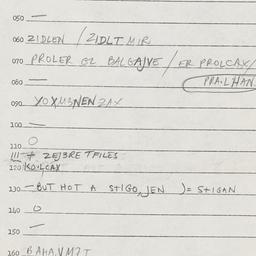 050 —
060 ZIDLEN / ZIDLT MIR
070 PROLER GZ BALGAJVE / ER PROLCAX/
080 — PRA.LHAN
090 YOXM3NENZAX
100 —
110 O
111 + ZEJBRE TFILES
120 KO.LCAX
130 — BUT HOT A STIGO, JEN )= STIGAN
140 O
150 —
160 BAHA.VM7T